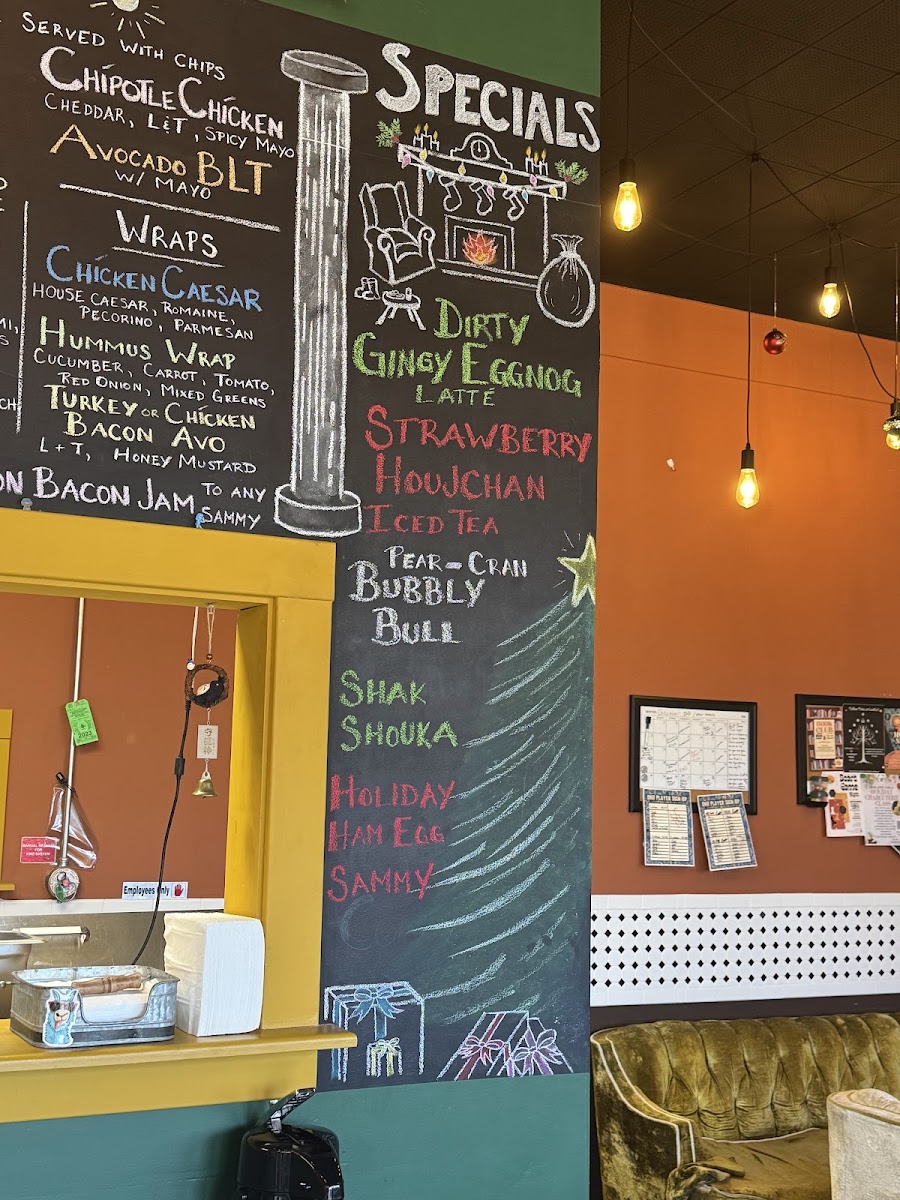 SERVED WITH CHIPS
CHIPOTLE CHICKEN
CHEDDAR, L&T, SPICY MAYO
AVOCADO BLT
W/ MAYO
WRAPS
CHICKEN CAESAR
HOUSE CAESAR, ROMAINE,
PECORINO, PARMESAN
HUMMUS WRAP
CUCUMBER, CARROT, TOMATO,
RED ONION, MIXED GREENS
TURKEY OR CHICKEN
BACON AVO
L+T, HONEY MUSTARD
BACON JAM TO ANY
SAMMY
SPECIALS
DIRTY
GINGY EGGNOG
LATTE
STRAWBERRY
HOUJCHAN
ICED TEA
PEAR-CRAN
BUBBLY
BULL
SHAK
SHOUKA
HOLIDAY
HAM EGG
SAMMY
Employees Only
2023